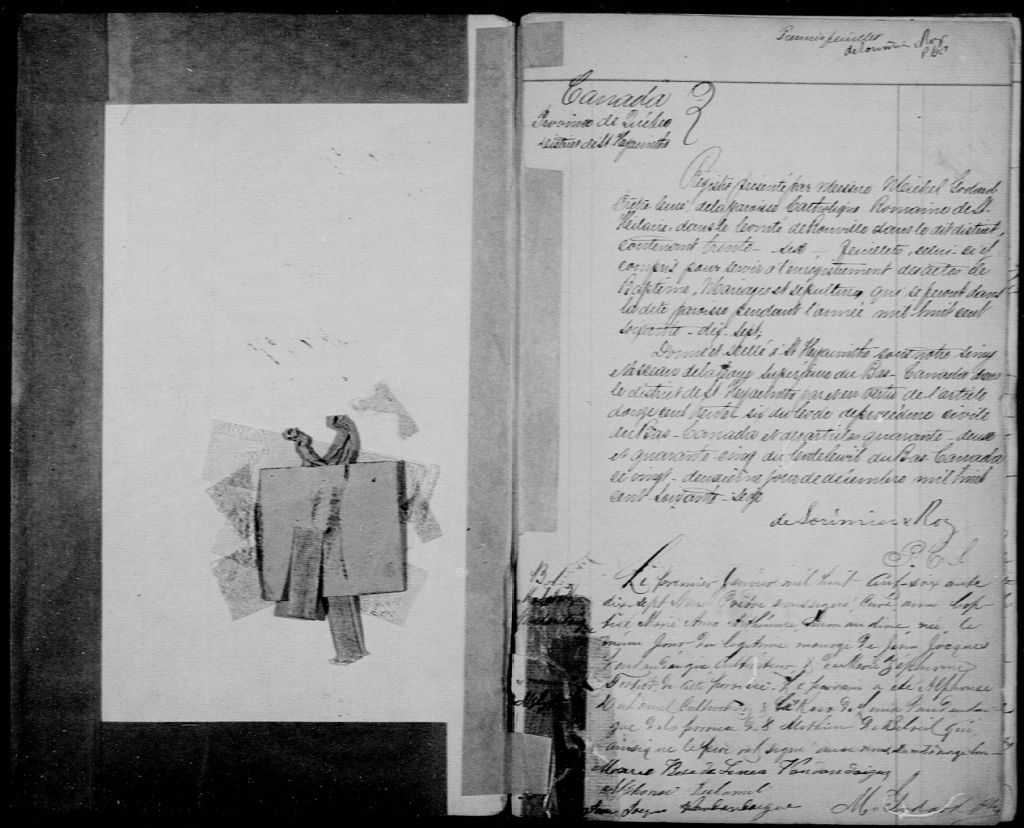 Premier feuillet
de Lorimier & Roy
P.C.S.
Canada
Province de Québec
District de St Hyacinthe
Registre présenté par Messire Michel Godard
Prêtre Curé, de la paroisse Catholique Romaine de St.
Hilaire, dans le Comté de Rouville dans le dit district,
contenant trente-six, feuillets, celui-ci y
compris pour servir à l'enregistrement des actes de
Baptême, Mariages et sépultures, qui se feront dans
la dite paroisse pendant l'année mil huit cent
soixante-dix-sept,
Donné et scellé à St Hyacinthe sous notre seing
et le sceau de la Cour Supérieure du Bas-Canada dans
le district de St Hyacinthe par et en vertu de l'article
douze cent trente six du Code de procédure civile
du Bas-Canada et des articles quarante-deux
et quarante-cinq du Code Civil du Bas Canada
ce vingt-deuxième jour de décembre mil huit
cent soixante-seize
de Lorimier & Roy
P.C.S.
B1
Le premier Janvier mil huit cent soixante
dix sept Nous Prêtre soussigné, Curé avons bap-
tisé Marie Anne Alphonsine, née le
même jour du légitime mariage de Jean Jacques
Vandandaigue Cultivateur & de Marie Zéphirine
de cette paroisse. Le parrain a été Alphonse
Duhamel Cultivateur & la Rose de Lima Vandandai
gue de la paroisse de S Mathieu de Beloeil qui
ainsi que le père ont signé avec nous.
Marie Rose de Lima Vandandaigue
Alphonse Duhamel
Jean Jacques Vandandaigue
M. Godard Ptre